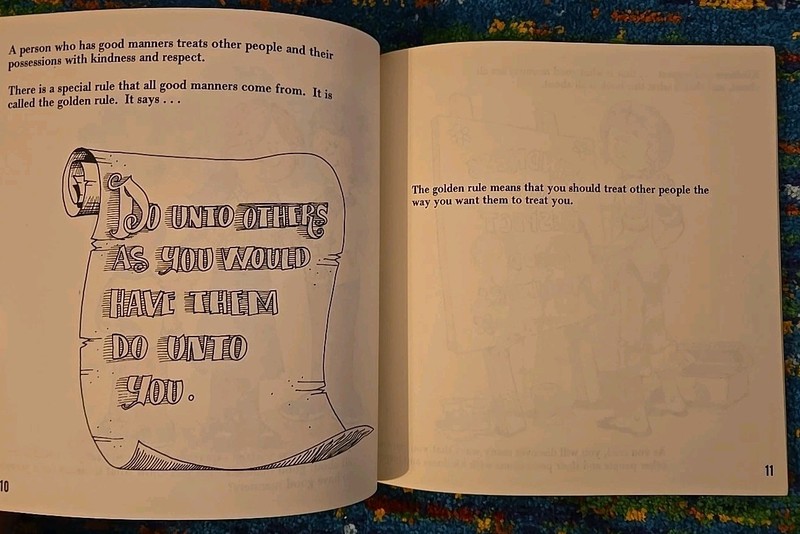 A person who has good manners treats other people and their
possessions with kindness and respect.
There is a special rule that all good manners come from. It is
called the golden rule. It says . . .
DO UNTO OTHERS
AS YOU WOULD
HAVE THEM
DO UNTO
YOU.
10
The golden rule means that you should treat other people the
way you want them to treat you.
11